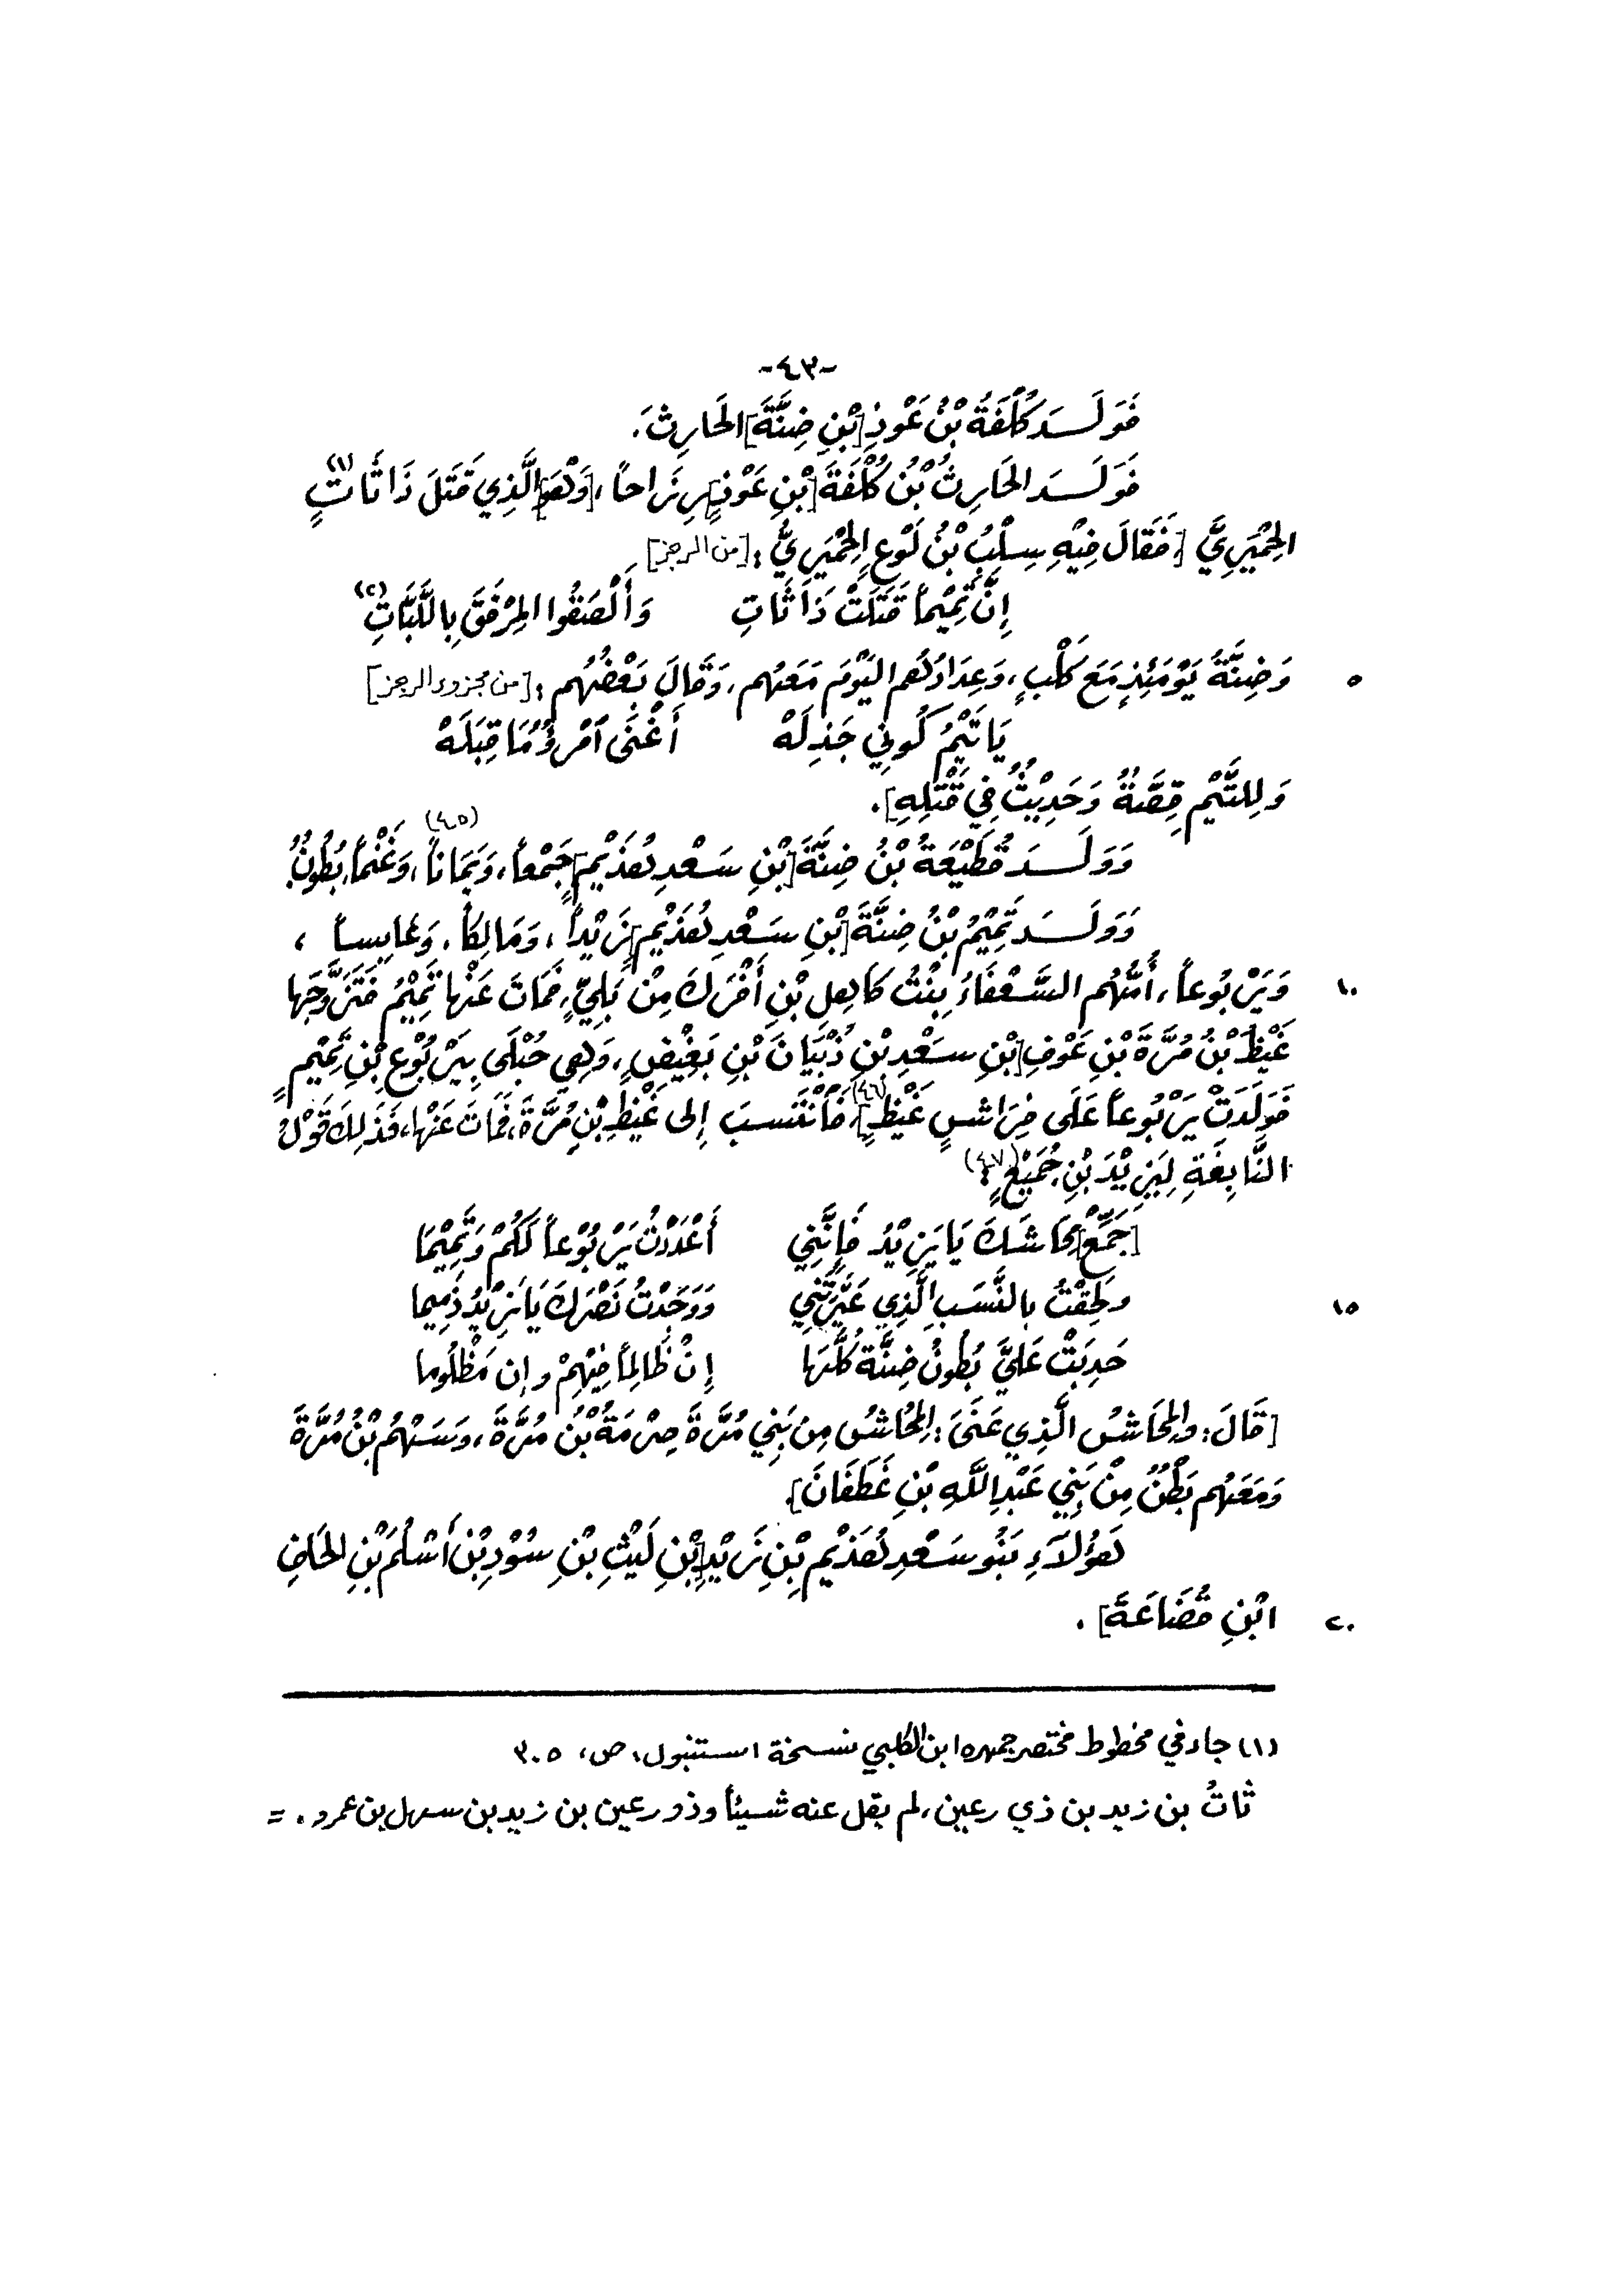 -٤٣-
فَوَلَــدَ كُلْفَةُ بْنُ عَوْذِ [بْنِ ضِنَّةَ] الحَارِثَ.
فَوَلَــدَ الحَارِثُ بْنُ كُلْفَةَ [بْنِ عَوْذٍ] رِزَاحاً، [وَهُوَ] الَّذِي قَتَلَ ذَا ثَاتٍ (١)
الحِمْيَرِيَّ [، فَقَالَ فِيْهِ سِلْبُ بْنُ لَوْعٍ الحِمْيَرِيُّ: [من الرجز]
إِنَّ تَمِيْماً قَتَلَتْ ذَا ثَاتِ   وَأَلْصَقُوا المِرْفَقَ بِاللَّبَّاتِ (٢)
٥ وَضِنَّةُ يَوْمَئِذٍ مَعَ كَلْبٍ، وَعِدَادُهُم اليَوْمَ مَعَهُم، وَقَالَ بَعْضُهُم: [من مجزوء الرجز]
يَا تَيْمُ كُونِي جَذِلَهْ   أَغْنَى ٱمْرُؤٌ مَا قِبَلَهْ
وَلِلتَّيْمِ قِصَّةٌ وَحَدِيْثٌ فِي قَتْلِهِ].
وَوَلَــدَ قُطَيْعَةُ بْنُ ضِنَّةَ [بْنِ سَعْدِ هُذَيْمٍ] جَمْعاً، وَيَمَاناً، (٤٥) وَغَنْماً، بُطُونٌ.
وَوَلَــدَ تَمِيْمُ بْنُ ضِنَّةَ [بْنِ سَعْدِ هُذَيْمٍ] زَيْداً، وَمَالِكاً، وَعَابِساً،
١٠ وَيَرْبُوعاً، أُمُّهُم السَّعْفَاءُ بِنْتُ كَاهِلِ بْنِ أَفْرَكَ مِنْ بَلِيٍّ، فَمَاتَ عَنْهَا تَمِيْمُ فَتَزَوَّجَهَا
غَيْظُ بْنُ مُرَّةَ بْنِ عَوْفِ [بْنِ سَعْدِ بْنِ ذُبْيَانَ بْنِ بَغِيْضٍ، وَهِي حُبْلَى بِيَرْبُوْعِ بْنِ تَمِيْمٍ
فَوَلَدَتْ يَرْبُوعاً عَلَى فِرَاشِ غَيْظٍ]، (٤٦) فَٱنْتَسَبَ إِلى غَيْظِ بْنِ مُرَّةَ، فَمَاتَ عَنْهَا، فَذَلِكَ قَوْلُ
النَّابِغَةِ لِيَزِيْدَ بْنِ جُمَيْعٍ: (٤٧)
[جَمِّعْ] مِحَاشَكَ يَا يَزِيْدُ فَإِنَّنِي   أَعْدَدْتُ يَرْبُوْعاً لَكُمْ وَتَمِيْمَا
١٥ ولَحِقْتُ بِالنَّسَبِ الَّذِي عَيَّرْتَنِي   وَوَجَدْتُ نَصْرَكَ يَا يَزِيْدُ ذَمِيما
حَدِبَتْ عَلَيَّ بُطُونُ ضِنَّةَ كُلُّهَا   إِنْ ظَالِماً فِيْهِمْ وإن مَظْلُوما
[قَالَ: والمِحَاشُ الَّذِي عَنَى: المِحَاشُ مِن بَنِي مُرَّةَ صِرْمَةُ بْنُ مُرَّةَ، وَسَهْمُ بْنُ مُرَّةَ
وَمَعَهُم بَطْنٌ مِنْ بَنِي عَبْدِ اللَّهِ بْنِ غَطَفَانَ].
هَؤُلَآءِ بَنُو سَعْدِ هُذَيْمِ بْنِ زَيْدِ [بْنِ لَيْثِ بْنِ سُوْدِ بْنِ أَسْلُمَ بْنِ الحَافِ
٢٠ ابْنِ قُضَاعَةَ].
(١) جاء في مخطوط مختصر جمهرة ابن الكلبي نسخة استنبول، ص، ٣٠٥
ثاتُ بن زيد بن ذي رعين، لم يقل عنه شيئاً وذو رعين بن زيد بن سهل بن عمرو. =